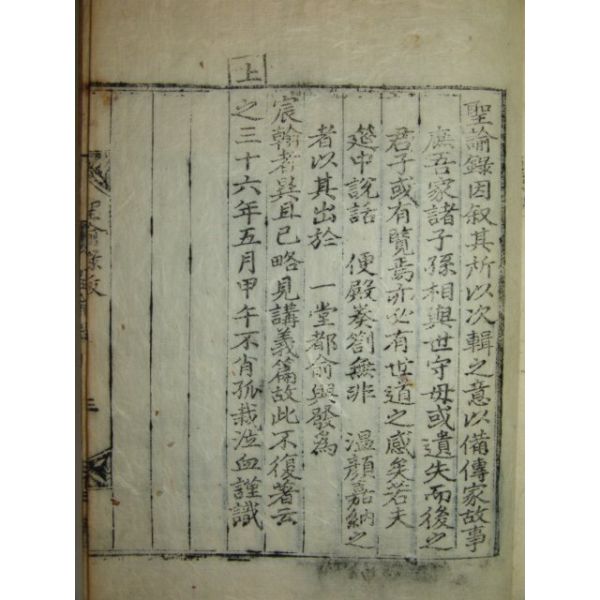 聖諭錄因叙其所以次輯之意以備傳家故事
庶吾家諸子孫相與世守毋或遺失而後之
君子或有覽焉亦必有世道之感矣若夫
筵中說話 便殿奏劄無非 溫顏嘉納之
者以其出於 一堂都俞與發為
宸翰者異且已略見講義篇故此不復著云
上
之三十六年五月甲午不肖孤栽泣血謹識
聖諭錄跋